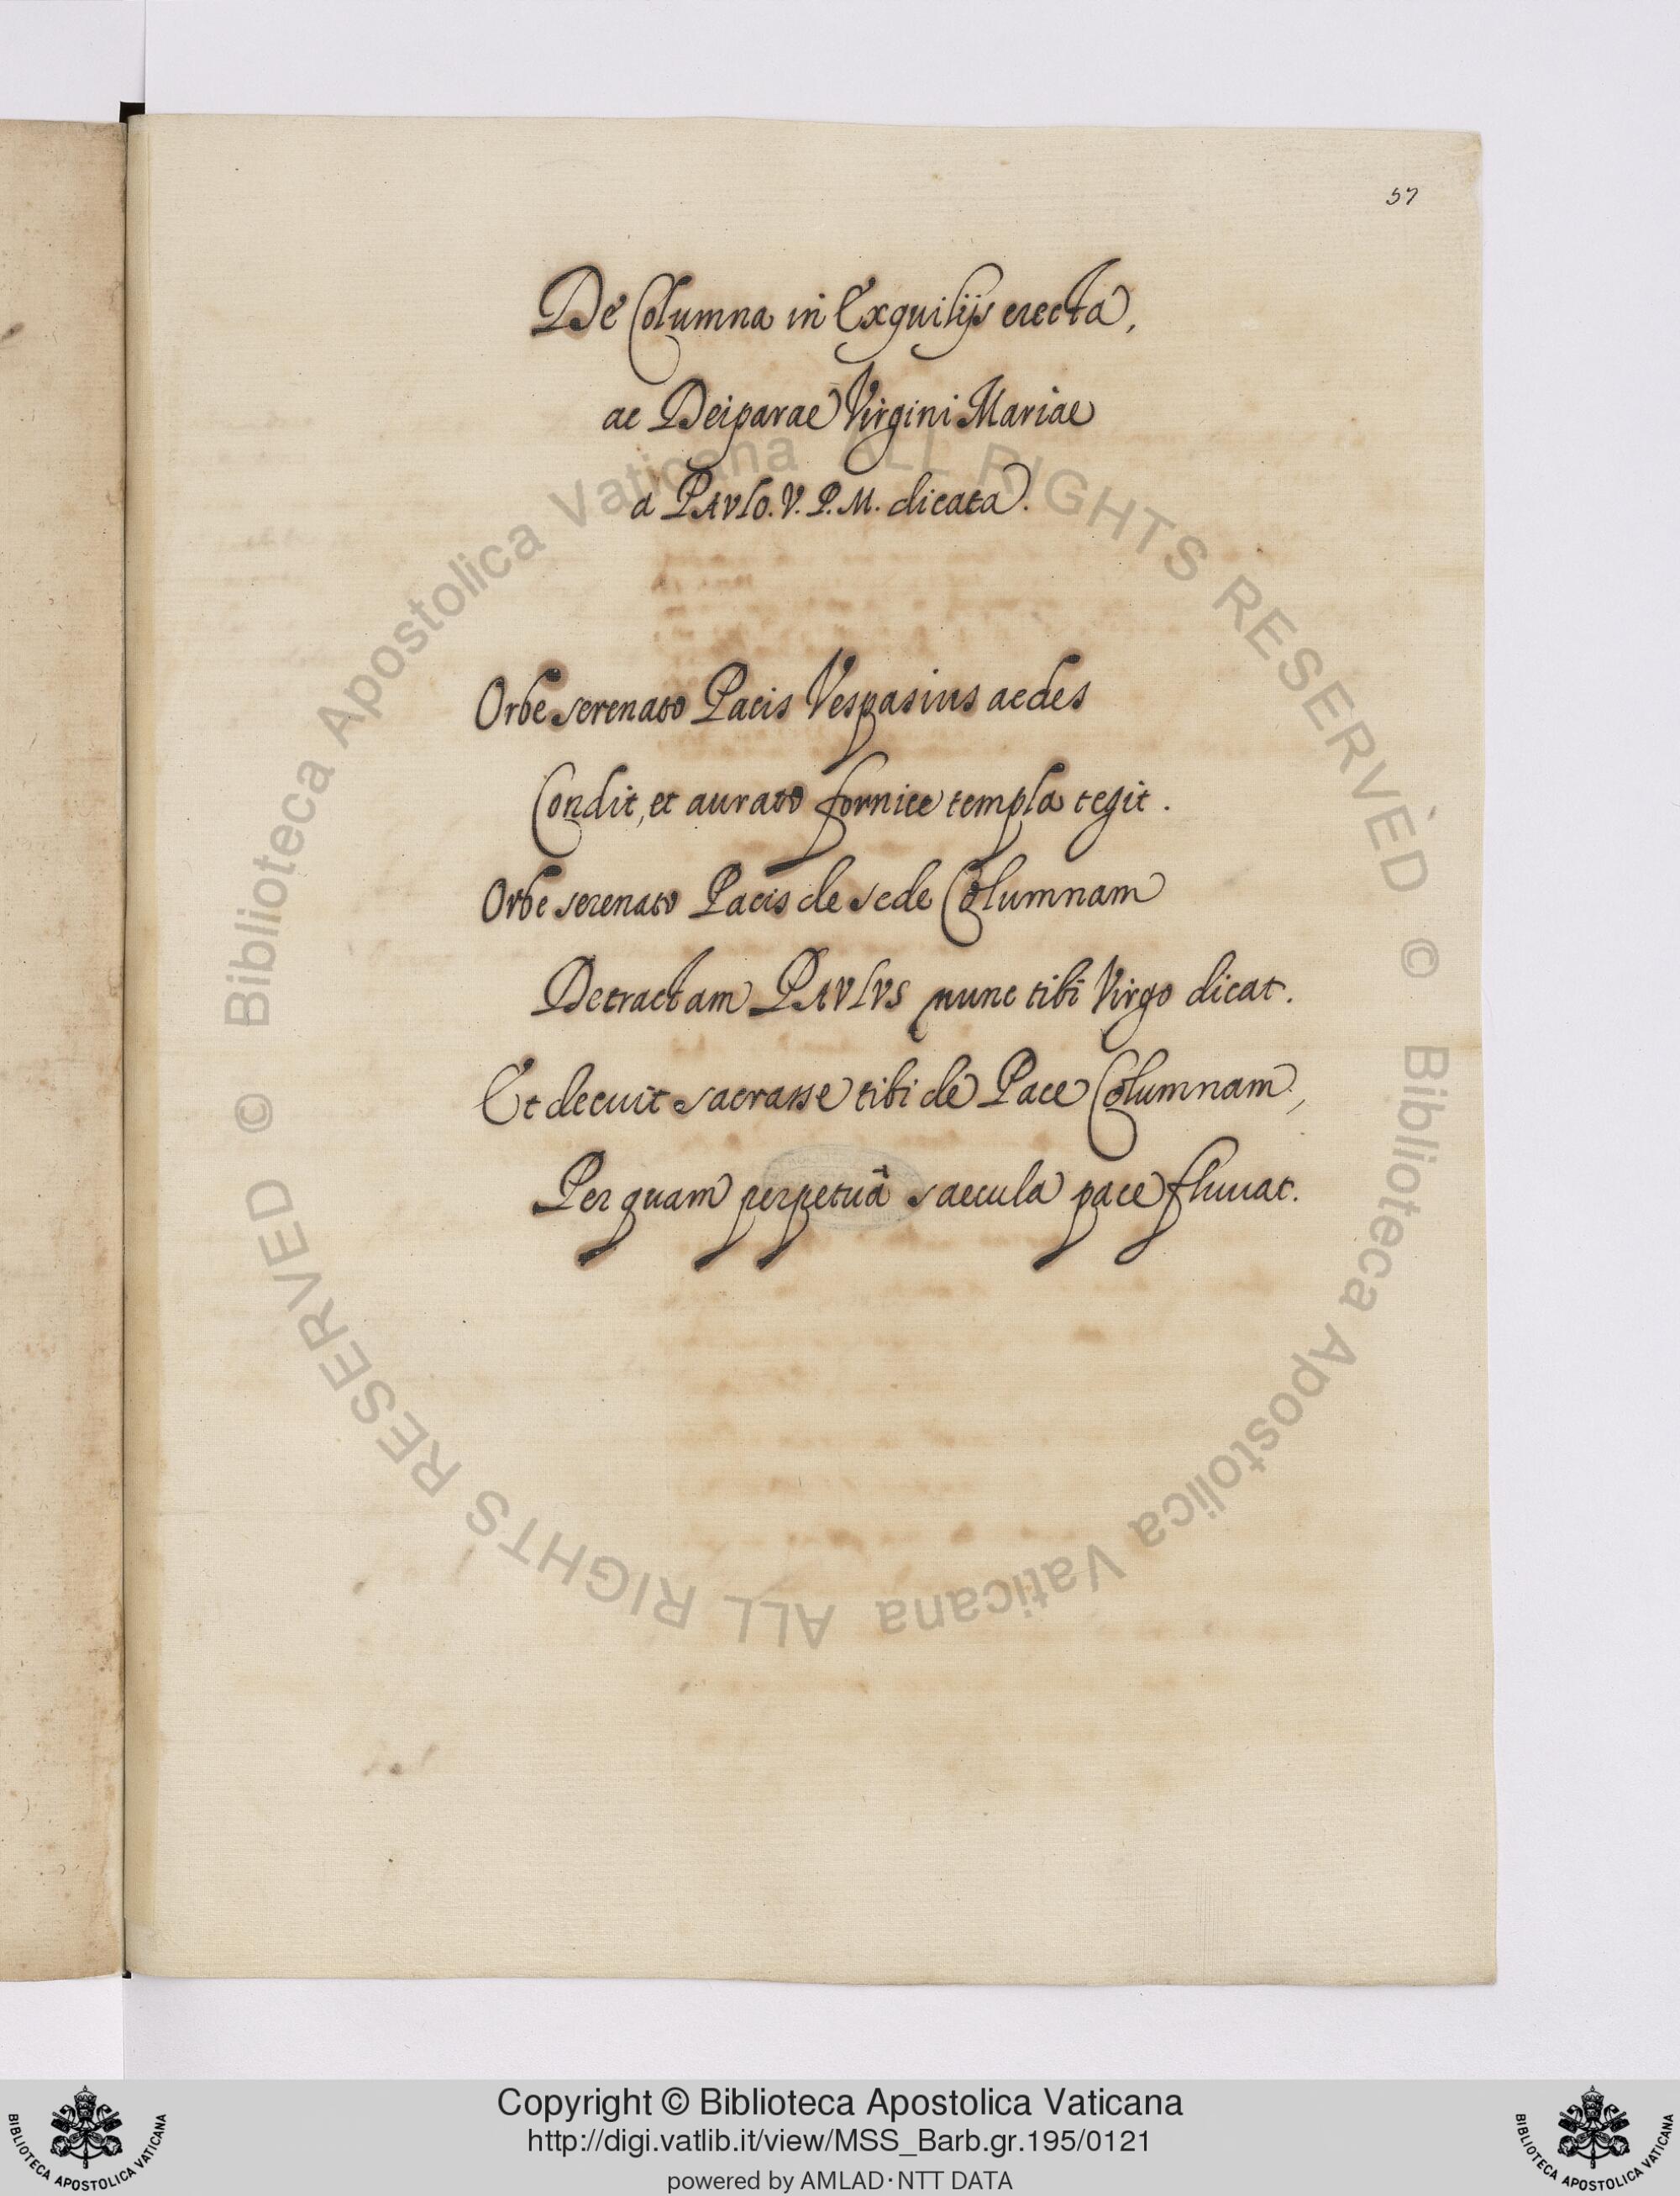 57
De Columna in Exquilijs erecta,
ac Deiparae Virgini Mariae
a PAVLO. V. P. M. dicata.
Orbe serenato Pacis Vespasius aedes
Condit, et aurato fornice templa tegit.
Orbe serenato Pacis de sede Columnam
Detractam PAVLVS nunc tibi Virgo dicat.
Et decuit sacrasse tibi de Pace Columnam,
Per quam perpetuâ saecula pace fluuat.
© Biblioteca Apostolica Vaticana ALL RIGHTS RESERVED
© Biblioteca Apostolica Vaticana ALL RIGHTS RESERVED
Copyright © Biblioteca Apostolica Vaticana
http://digi.vatlib.it/view/MSS_Barb.gr.195/0121
powered by AMLAD·NTT DATA
BIBLIOTECA APOSTOLICA VATICANA
BIBLIOTECA APOSTOLICA VATICANA